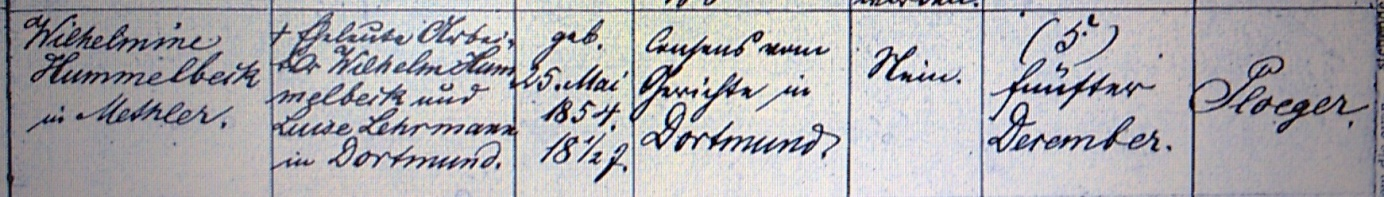 Wilhelmine
Hummelbeck
in Methler.
† Eheleute Arbei-
ter Wilhelm Hum
melbeck und
Luise Lehrmann
in Dortmund.
geb.
25. Mai
1854.
18 1/2 J.
Consens vom
Gerichte in
Dortmund.
Nein.
(5.)
fünfter
Dezember.
Ploeger.